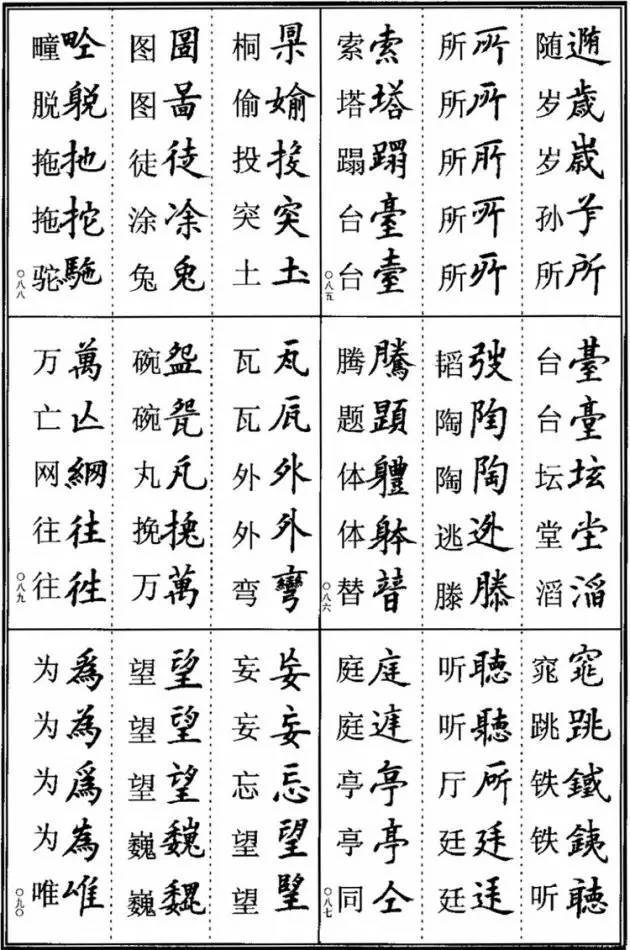 随 岁歳 岁嵗 孙 所所
所所 所所 所所 所所 所所
索索 塔塔 蹋蹋 台臺 台臺
○八五
台臺 台臺 坛坛 堂坣 滔滔
韬弢 陶陶 陶陶 逃迯 滕滕
腾騰 题題 体軆 体躰 替
○八六
窕窕 跳跳 铁鐵 铁銕 听聽
听聽 听聽 厅 廷廷 廷
庭庭 庭 亭亭 亭亭 同仝
○八七
桐 偷媮 投投 突突 土圡
图圖 图啚 徒徒 涂凃 兔兔
疃 脱 拖扡 拖拕 驼駞
○八八
瓦 瓦 外外 外外 弯彎
碗盌 碗 丸 挽 万萬
万萬 亡亾 网網 往往 往徃
○八九
妄 妄妄 忘忘 望望 望
望望 望望 望望 巍巍 巍
为為 为為 为爲 为為 唯
○九○